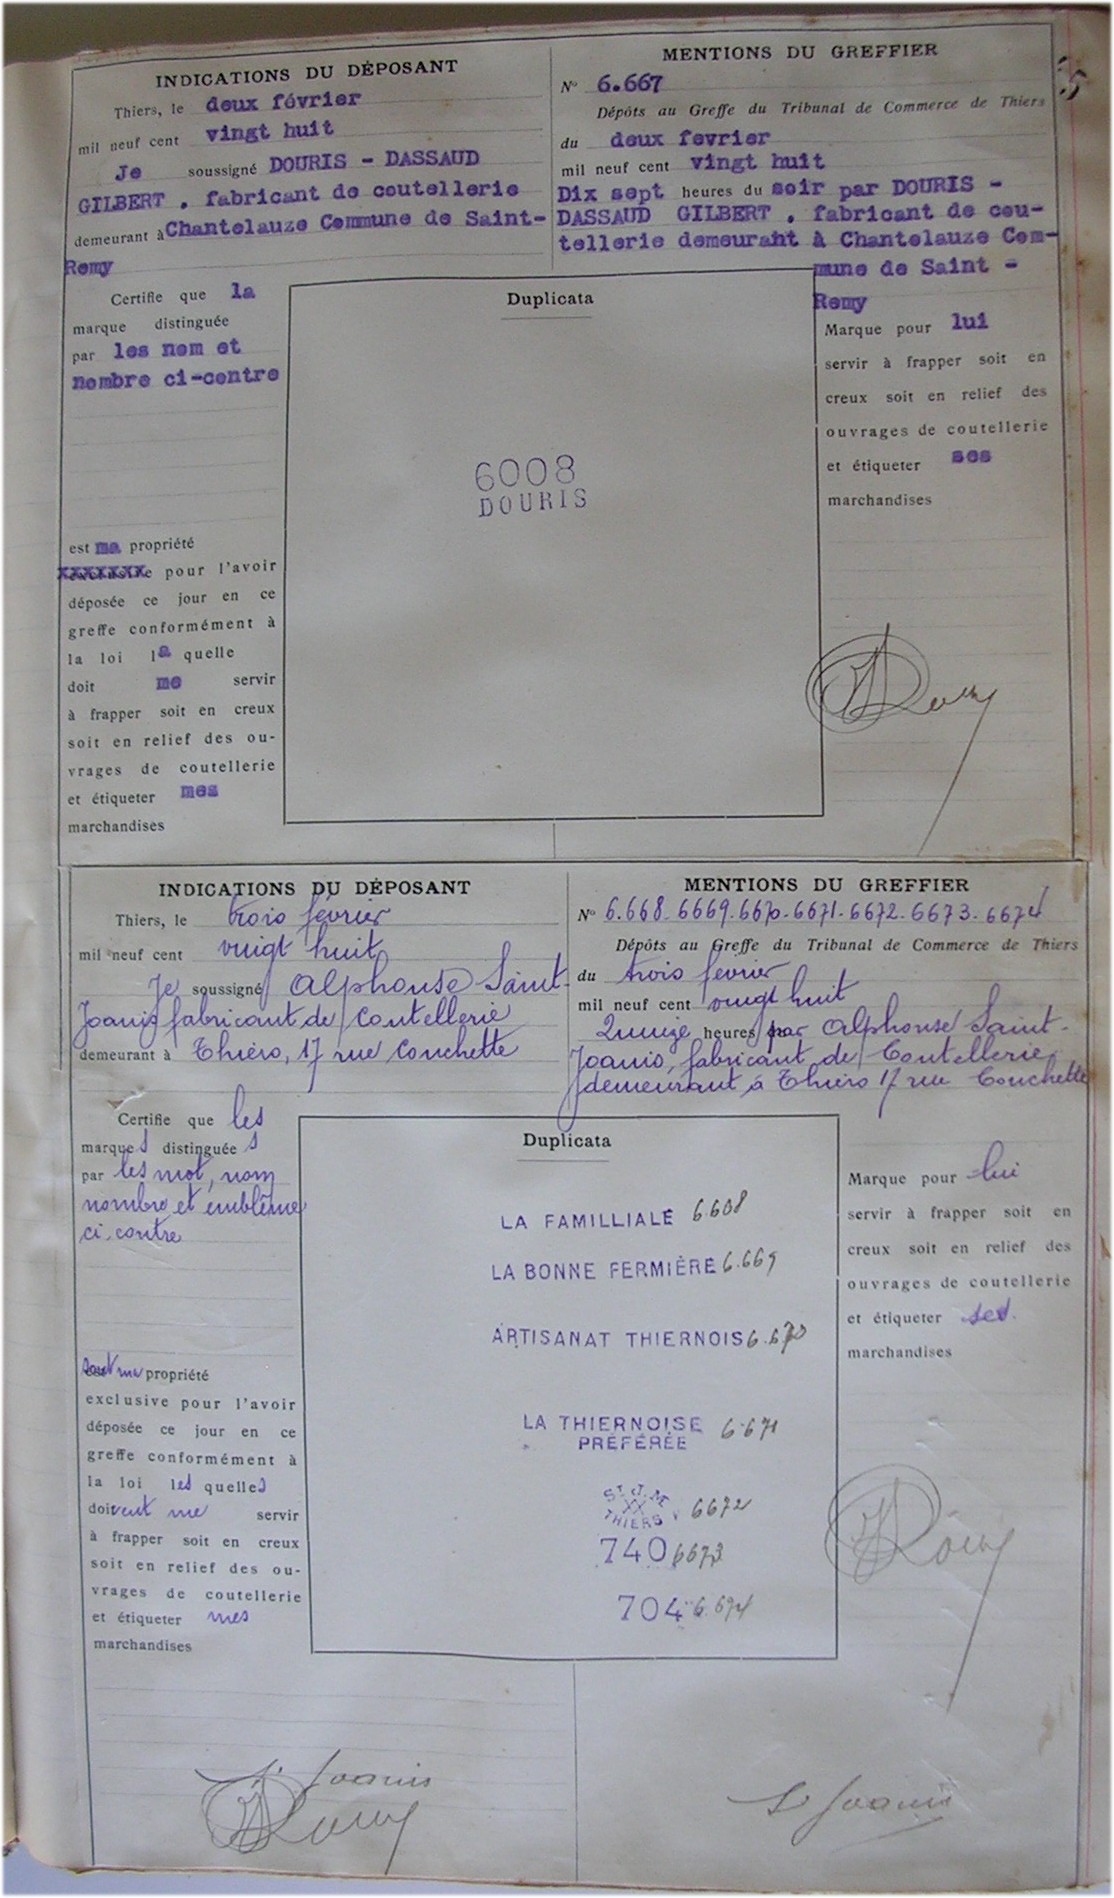 INDICATIONS DU DÉPOSANT
Thiers, le deux février
mil neuf cent vingt huit
Je soussigné DOURIS - DASSAUD
GILBERT , fabricant de coutellerie
demeurant à Chantelauze Commune de Saint-
Remy
Certifie que la
marque distinguée
par les nom et
nombre ci-contre
est ma propriété
xxxxxxxx pour l'avoir
déposée ce jour en ce
greffe conformément à
la loi la quelle
doit me servir
à frapper soit en creux
soit en relief des ou-
vrages de coutellerie
et étiqueter mes
marchandises
Duplicata
6008
DOURIS
MENTIONS DU GREFFIER
N° 6.667
Dépôts au Greffe du Tribunal de Commerce de Thiers
du deux fevrier
mil neuf cent vingt huit
Dix sept heures du soir par DOURIS -
DASSAUD GILBERT , fabricant de cou-
tellerie demeurant à Chantelauze Com-
mune de Saint -
Remy
Marque pour lui
servir à frapper soit en
creux soit en relief des
ouvrages de coutellerie
et étiqueter ses
marchandises
INDICATIONS DU DÉPOSANT
Thiers, le trois février
mil neuf cent vingt huit
Je soussigné Alphonse Saint-
Joanis fabricant de Coutellerie
demeurant à Thiers, 17 rue Conchette
Certifie que les
marques distinguées
par les mot, nom
nombre et emblême
ci-contre
sont ma propriété
exclusive pour l'avoir
déposée ce jour en ce
greffe conformément à
la loi lesquelles
doivent me servir
à frapper soit en creux
soit en relief des ou-
vrages de coutellerie
et étiqueter mes
marchandises
Duplicata
LA FAMILLIALE 6.608
LA BONNE FERMIÈRE 6.669
ARTISANAT THIERNOIS 6.670
LA THIERNOISE 6.671
PRÉFÉRÉE
ST. J. NE
XX
THIERS 6672
740 6673
704 6.674
MENTIONS DU GREFFIER
N° 6.668-6669-6670-6671-6672-6673-6674
Dépôts au Greffe du Tribunal de Commerce de Thiers
du trois février
mil neuf cent vingt huit
Quinze heures par Alphonse Saint-
Joanis, fabricant de Coutellerie
demeurant à Thiers 17 rue Conchette
Marque pour lui
servir à frapper soit en
creux soit en relief des
ouvrages de coutellerie
et étiqueter ses
marchandises
St Joanis
St Joanis